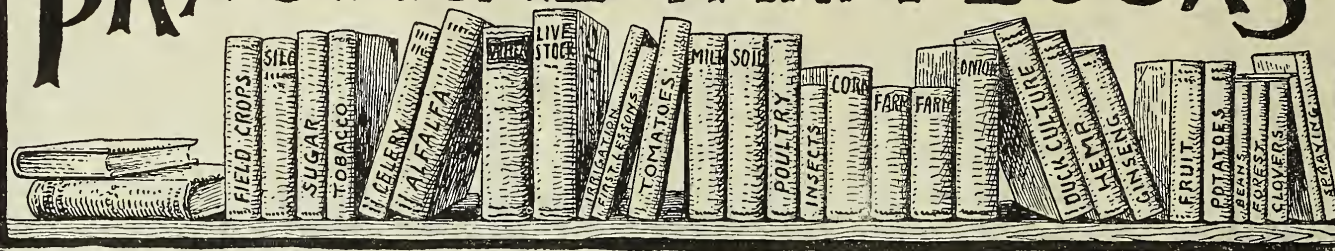 PRACTICAL FARM BOOKS
FIELD CROPS
SILO
SUGAR
TOBACCO
CELERY
ALFALFA
LIVE
STOCK
IRRIGATION
FIRST LESSONS
TOMATOES
MILK
SOIL
POULTRY
INSECTS
CORN
FARM
FARM
ONION
DUCK CULTURE
HEMP
GINSENG
FRUIT
POTATOES
BEANS
FOREST
CLOVERS
SPRAYING